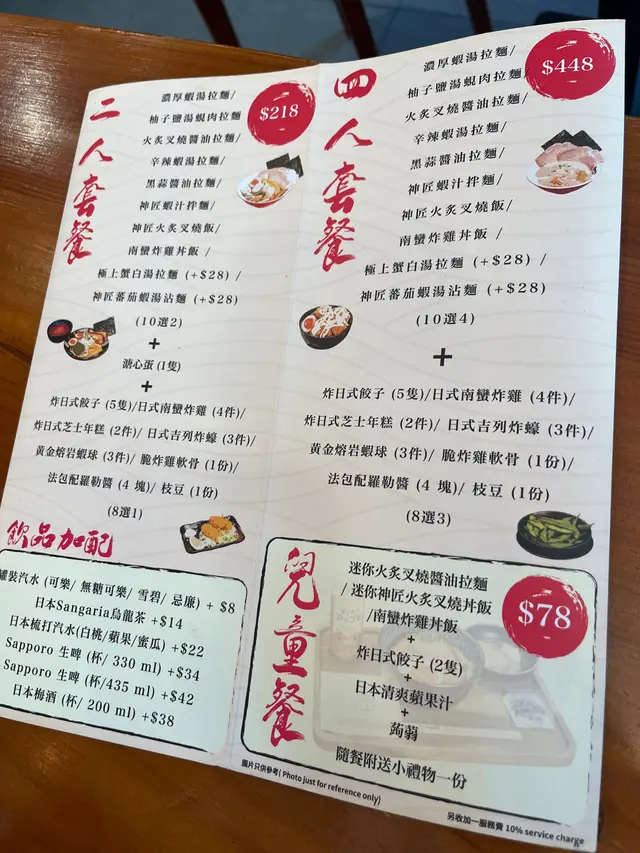 二人套餐
$218
濃厚蝦湯拉麵/
柚子鹽湯蜆肉拉麵
火炙叉燒醬油拉麵/
辛辣蝦湯拉麵/
黑蒜醬油拉麵/
神匠蝦汁拌麵/
神匠火炙叉燒飯/
南蠻炸雞丼飯 /
極上蟹白湯拉麵 (+$28) /
神匠蕃茄蝦湯沾麵 (+$28)
(10選2)
+
溏心蛋 (1隻)
+
炸日式餃子 (5隻)/日式南蠻炸雞 (4件)/
炸日式芝士年糕 (2件)/ 日式吉列炸蠔 (3件)/
黃金熔岩蝦球 (3件)/ 脆炸雞軟骨 (1份)/
法包配羅勒醬 (4 塊)/ 枝豆 (1份)
(8選1)
飲品加配
罐裝汽水 (可樂/ 無糖可樂/ 雪碧/ 忌廉) + $8
日本Sangaria烏龍茶 +$14
日本梳打汽水(白桃/蘋果/蜜瓜) +$22
Sapporo 生啤 (杯/ 330 ml) +$34
Sapporo 生啤 (杯/435 ml) +$42
日本梅酒 (杯/ 200 ml) +$38
四人套餐
$448
濃厚蝦湯拉麵/
柚子鹽湯蜆肉拉麵/
火炙叉燒醬油拉麵/
辛辣蝦湯拉麵/
黑蒜醬油拉麵/
神匠蝦汁拌麵/
神匠火炙叉燒飯/
南蠻炸雞丼飯 /
極上蟹白湯拉麵 (+$28) /
神匠蕃茄蝦湯沾麵 (+$28)
(10選4)
+
炸日式餃子 (5隻)/日式南蠻炸雞 (4件)/
炸日式芝士年糕 (2件)/ 日式吉列炸蠔 (3件)/
黃金熔岩蝦球 (3件)/ 脆炸雞軟骨 (1份)/
法包配羅勒醬 (4 塊)/ 枝豆 (1份)
(8選3)
兒童餐
$78
迷你火炙叉燒醬油拉麵
/ 迷你神匠火炙叉燒丼飯
/南蠻炸雞丼飯
+
炸日式餃子 (2隻)
+
日本清爽蘋果汁
+
蒟蒻
隨餐附送小禮物一份
圖片只供參考( Photo just for reference only)
另收加一服務費 10% service charge